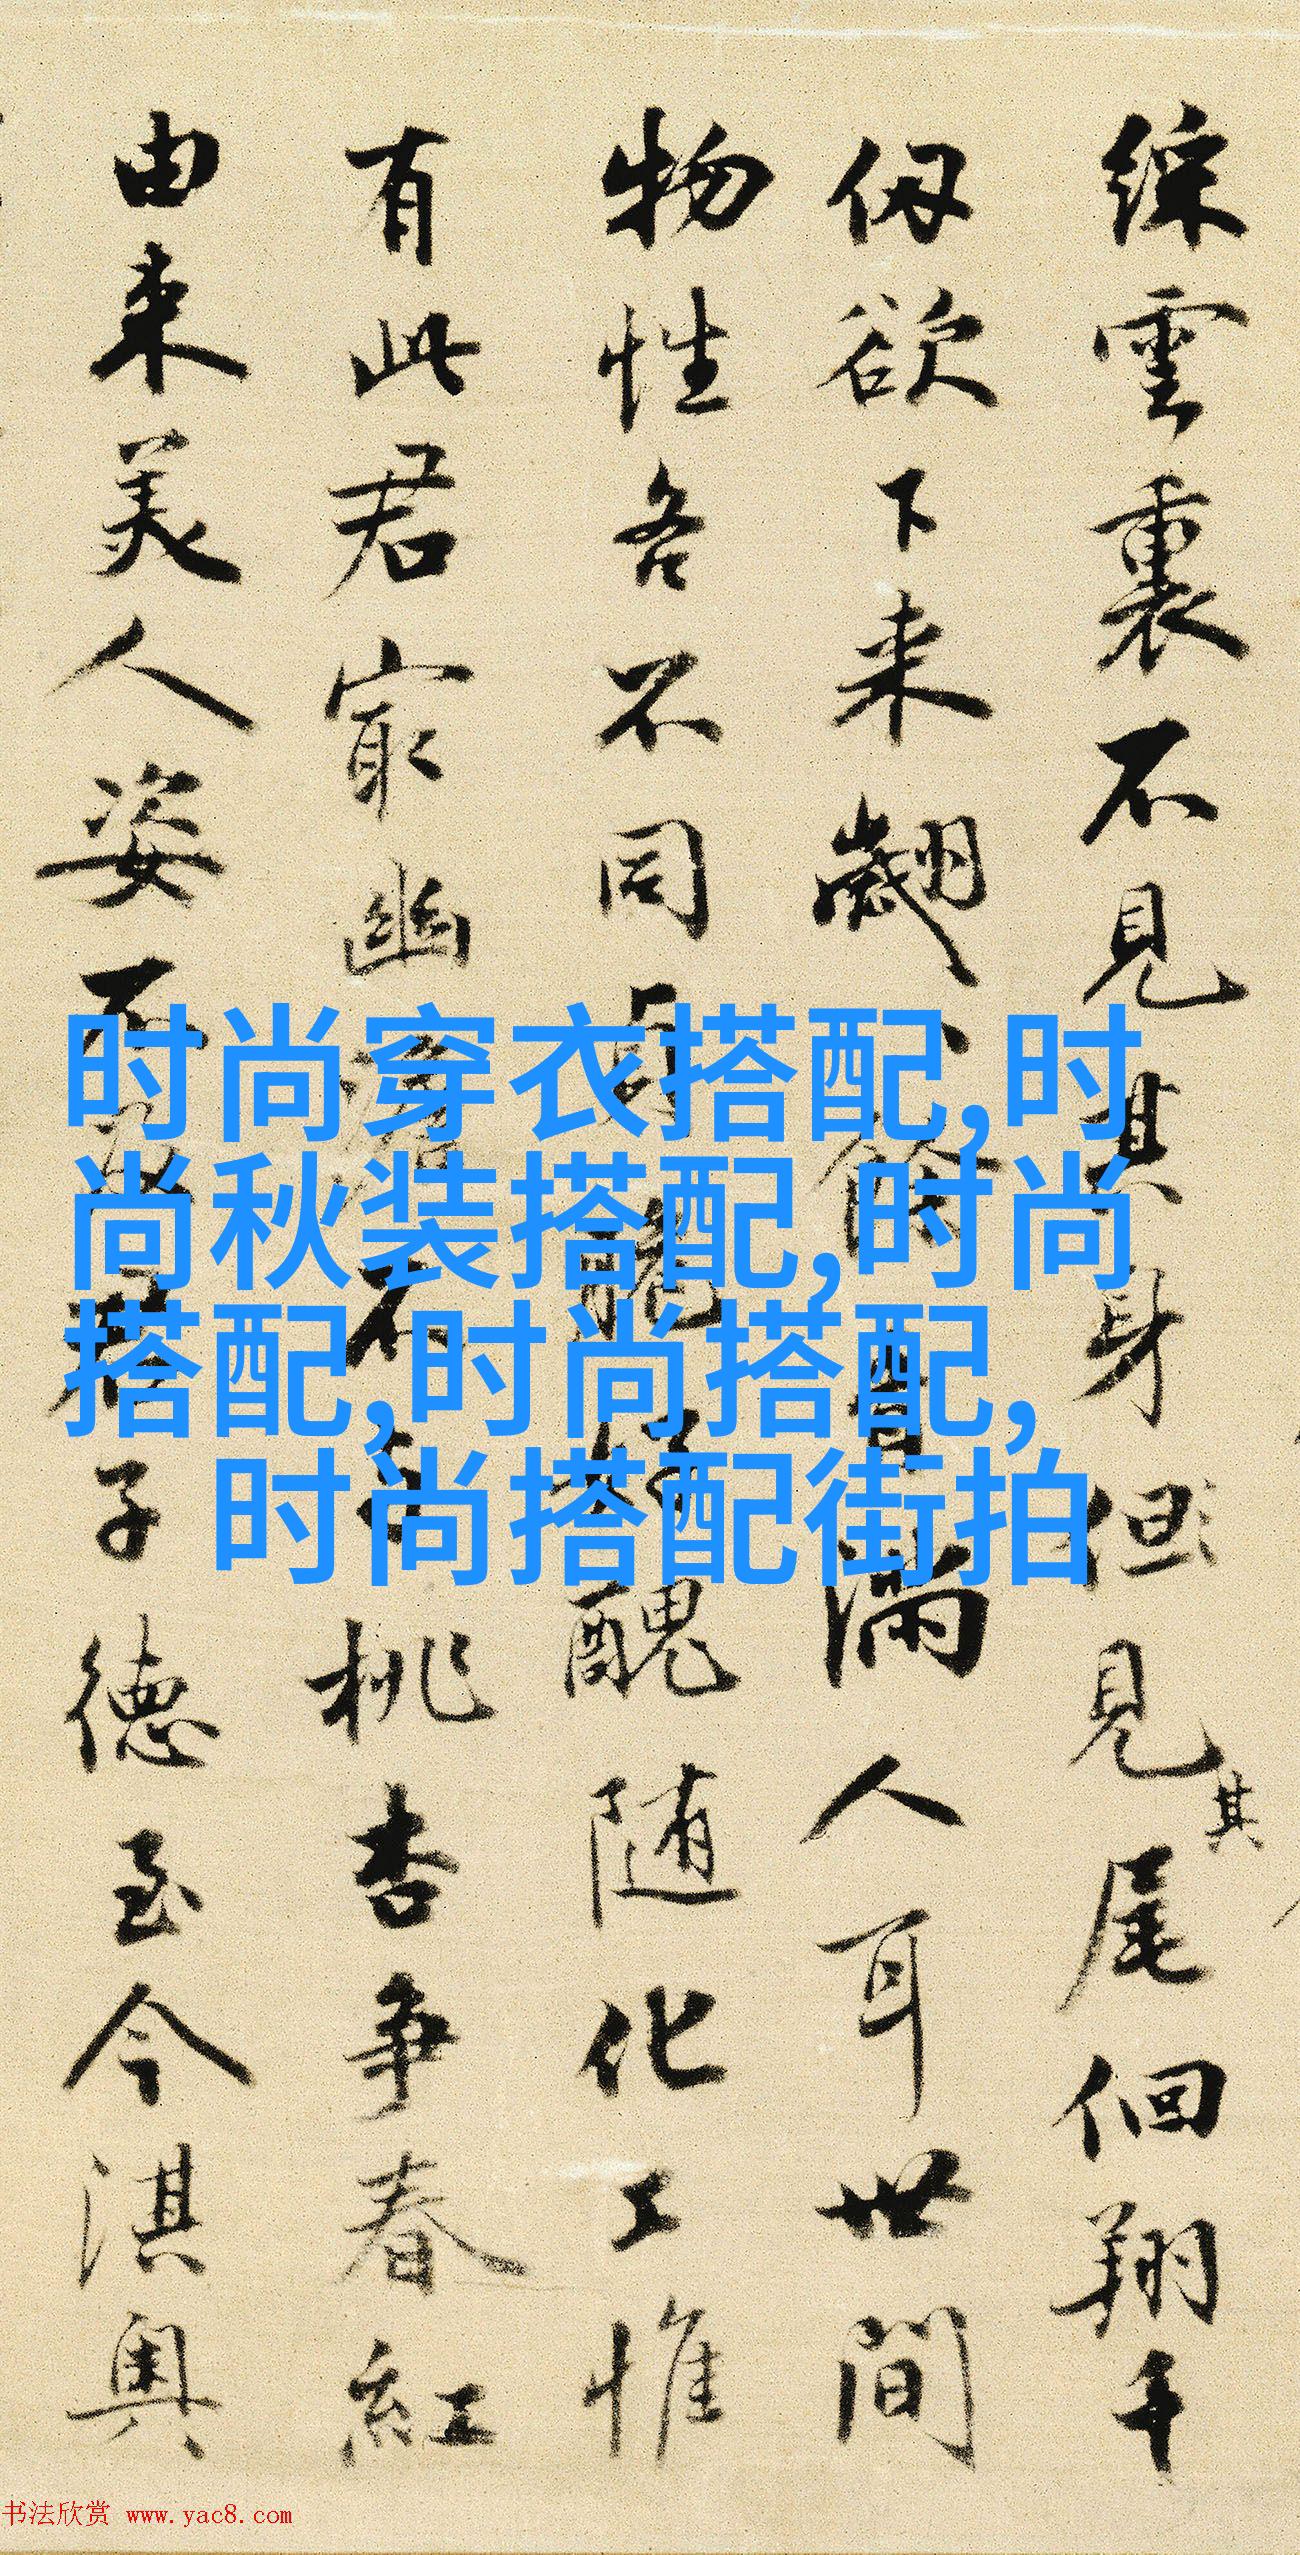 綵雲裏不見其身但見其尾徊翔千
仞欲下来翽、餘音滿人耳世間
物性各不同自醜随化工惟
有此君寂幽澹不与桃杏争春紅
由来美人姿不子德至今淇奥
时尚穿衣搭配,时
尚秋装搭配,时尚
搭配,时尚搭配,
时尚搭配街拍
书法欣赏 www.yac8.com